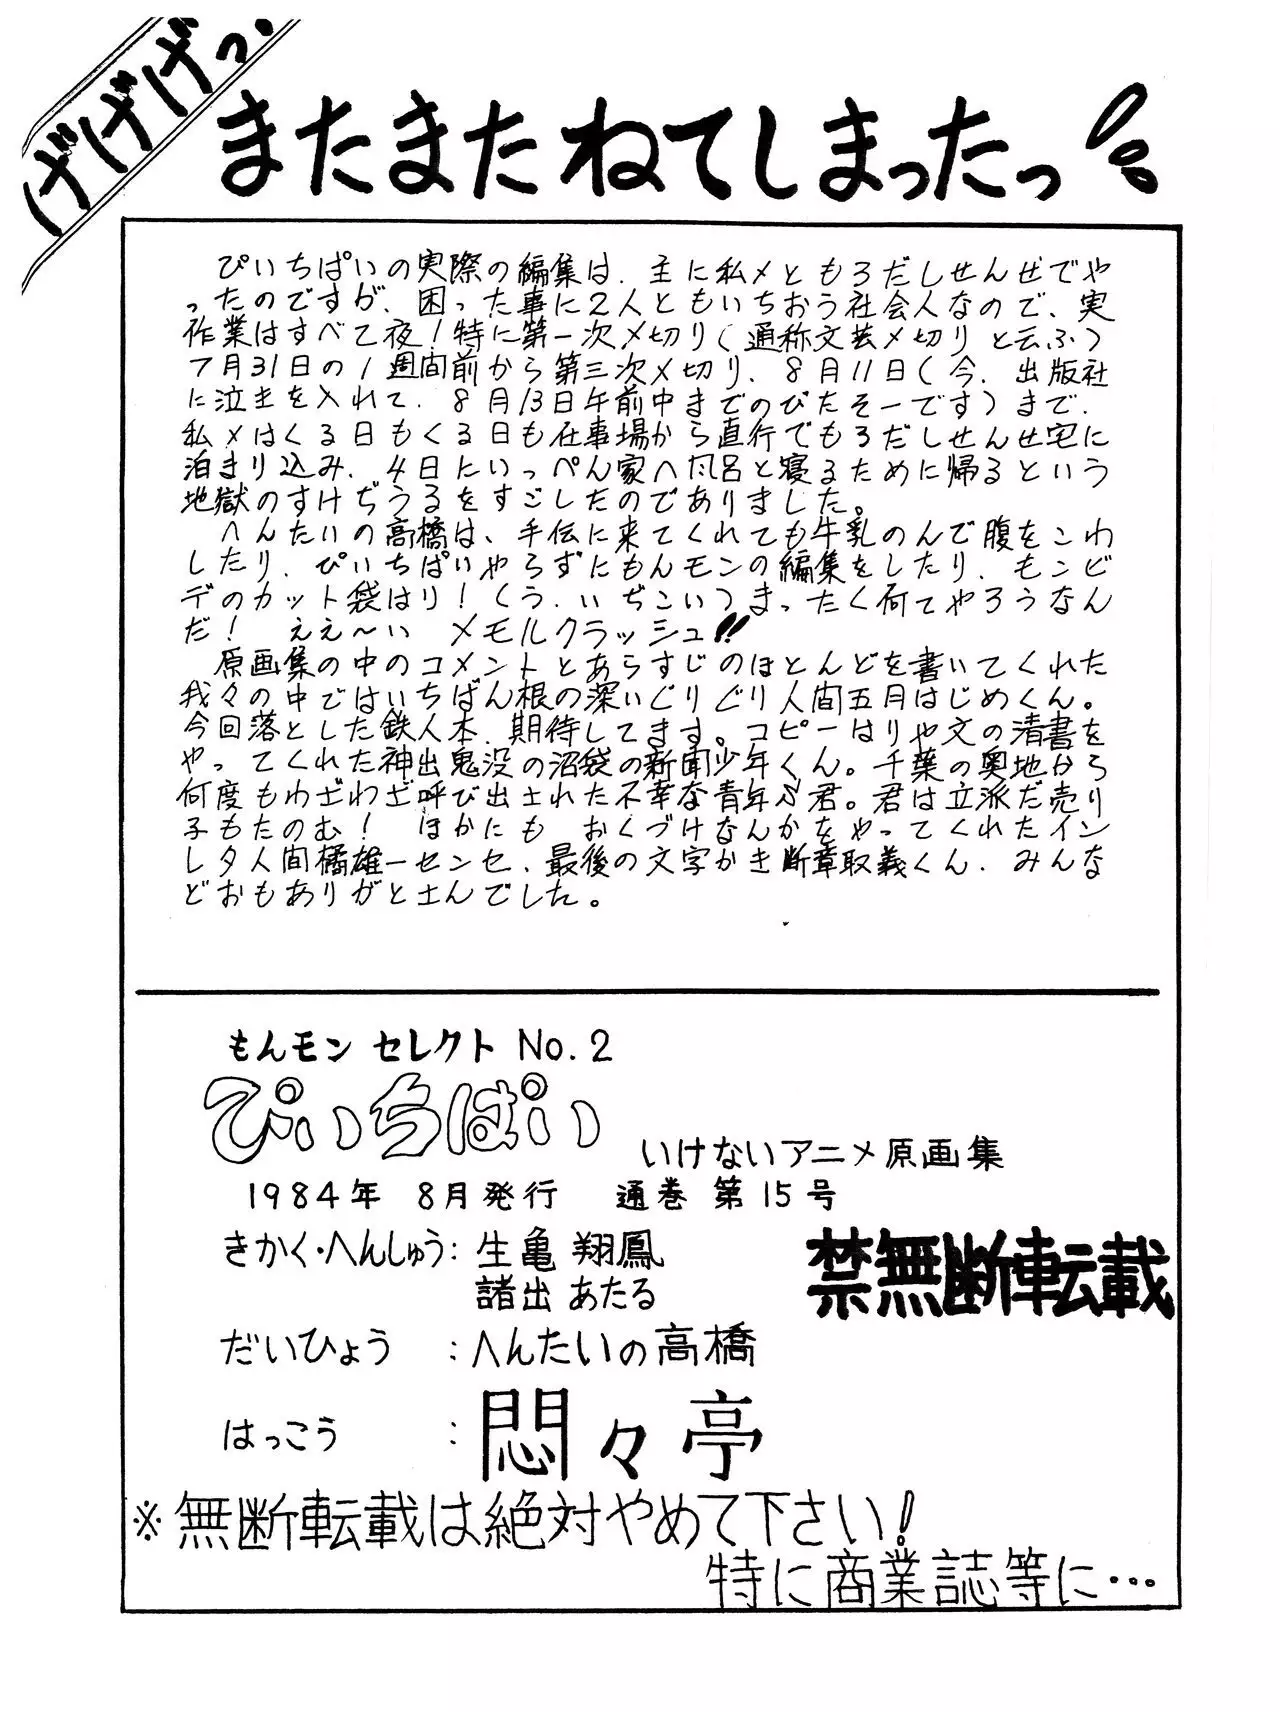 げげげっ、
またまたねてしまったっ
ぴいちぱいの実際の編集は、主に私メともろだしせんせでや
ったのですが、困った事に2人ともいちおう社会人なので、実
作業はすべて夜!特に第一次〆切り(通称文芸〆切りと云ふ)
7月31日の1週間前から第三次〆切り、8月11日(今、出版社
に泣きを入れて、8月13日午前中までのびたそーです)まで、
私メはくる日もくる日も仕事場から直行でもろだしせんせ宅に
泊まり込み、4日にいっぺん家へ風呂と寝るために帰るという
地獄のすけぢうるをすごしたのでありました。
へんたいの高橋は、手伝に来てくれても牛乳のんで腹をこわ
したり、ぴいちぱいやらずにもんモンの編集をしたり、モンビ
デのカット袋はり!くう、いぢこいつまったく何てやろうなん
だ! ええ〜い メモルクラッシュ!!
原画集の中のコメントとあらすじのほとんどを書いてくれた
我々の中ではいちばん根の深いぐりぐり人間五月はじめくん。
今回落とした鉄人本、期待してます。コピーはりや文の清書を
やってくれた神出鬼没の沼袋の新聞少年くん。千葉の奥地から
何度もわざわざ呼び出された不幸な青年ふ君。君は立派だ売り
子もたのむ! ほかにも おくづけなんかをやってくれたイン
レタ人間橘雄一センセ、最後の文字かき断章取義くん、みんな
どおもありがとさんでした。
もんモン セレクト No.2
ぴいちぱい
いけないアニメ原画集
1984年 8月発行 通巻 第15号
きかく・へんしゅう:生亀 翔鳳
諸出 あたる
禁無断転載
だいひょう :へんたいの高橋
はっこう :悶々亭
※無断転載は絶対やめて下さい!
特に商業誌等に…